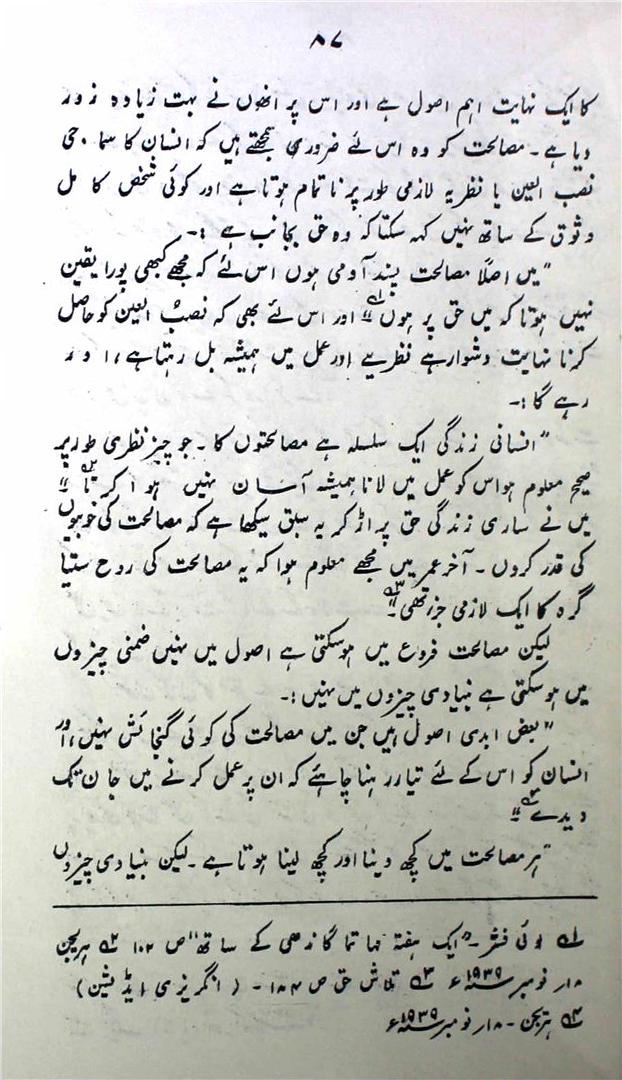 ۸۷
کا ایک نہایت اہم اصول ہے اور اس پر انھوں نے بہت زیادہ زور
دیا ہے۔ مصالحت کو وہ اس لئے ضروری سمجھتے ہیں کہ انسان کا سماجی
نصب العین یا نظریہ لازمی طور پر ناتمام ہوتا ہے اور کوئی شخص کامل
وثوق کے ساتھ نہیں کہہ سکتا کہ وہ حق بجانب ہے :۔
"میں اصلًا مصالحت پسند آدمی ہوں اس لئے کہ مجھے کبھی پورا یقین
نہیں ہوتا کہ میں حق پر ہوں"۱ اور اس لئے بھی کہ نصبُ العین کو حاصل
کرنا نہایت دشوار ہے نظریے اور عمل میں ہمیشہ بل رہتا ہے، اور
رہے گا :۔
"انسانی زندگی ایک سلسلہ ہے مصالحتوں کا۔ جو چیز نظری طور پر
صحیح معلوم ہو اس کو عمل میں لانا ہمیشہ آسان نہیں ہوا کرتا"۲
میں نے ساری زندگی حق پر اڑ کر یہ سبق سیکھا ہے کہ مصالحت کی خوبیوں
کی قدر کروں۔ آخر عمر میں مجھے معلوم ہوا کہ یہ مصالحت کی روح ستیا
گرہ کا ایک لازمی جز تھی"۳
لیکن مصالحت فروع میں ہو سکتی ہے اصول میں نہیں ضمنی چیزوں
میں ہو سکتی ہے بنیادی چیزوں میں نہیں :۔
"بعض ابدی اصول ہیں جن میں مصالحت کی کوئی گنجائش نہیں، اور
انسان کو اس کے لئے تیار رہنا چاہئے کہ ان پر عمل کرنے میں جان تک
دیدے"۴
"ہر مصالحت میں کچھ دینا اور کچھ لینا ہوتا ہے۔ لیکن بنیادی چیزوں
۱ لوئی فشر۔ "ایک ہفتہ مہاتما گاندھی کے ساتھ" ص ۱۰۲ ۲ ہریجن
۱۸ر نومبر ۱۹۳۹ء ۳ تلاش حق ص ۱۸۴۔ (انگریزی ایڈیشن)
۴ ہریجن۔ ۱۸ر نومبر ۱۹۳۹ء